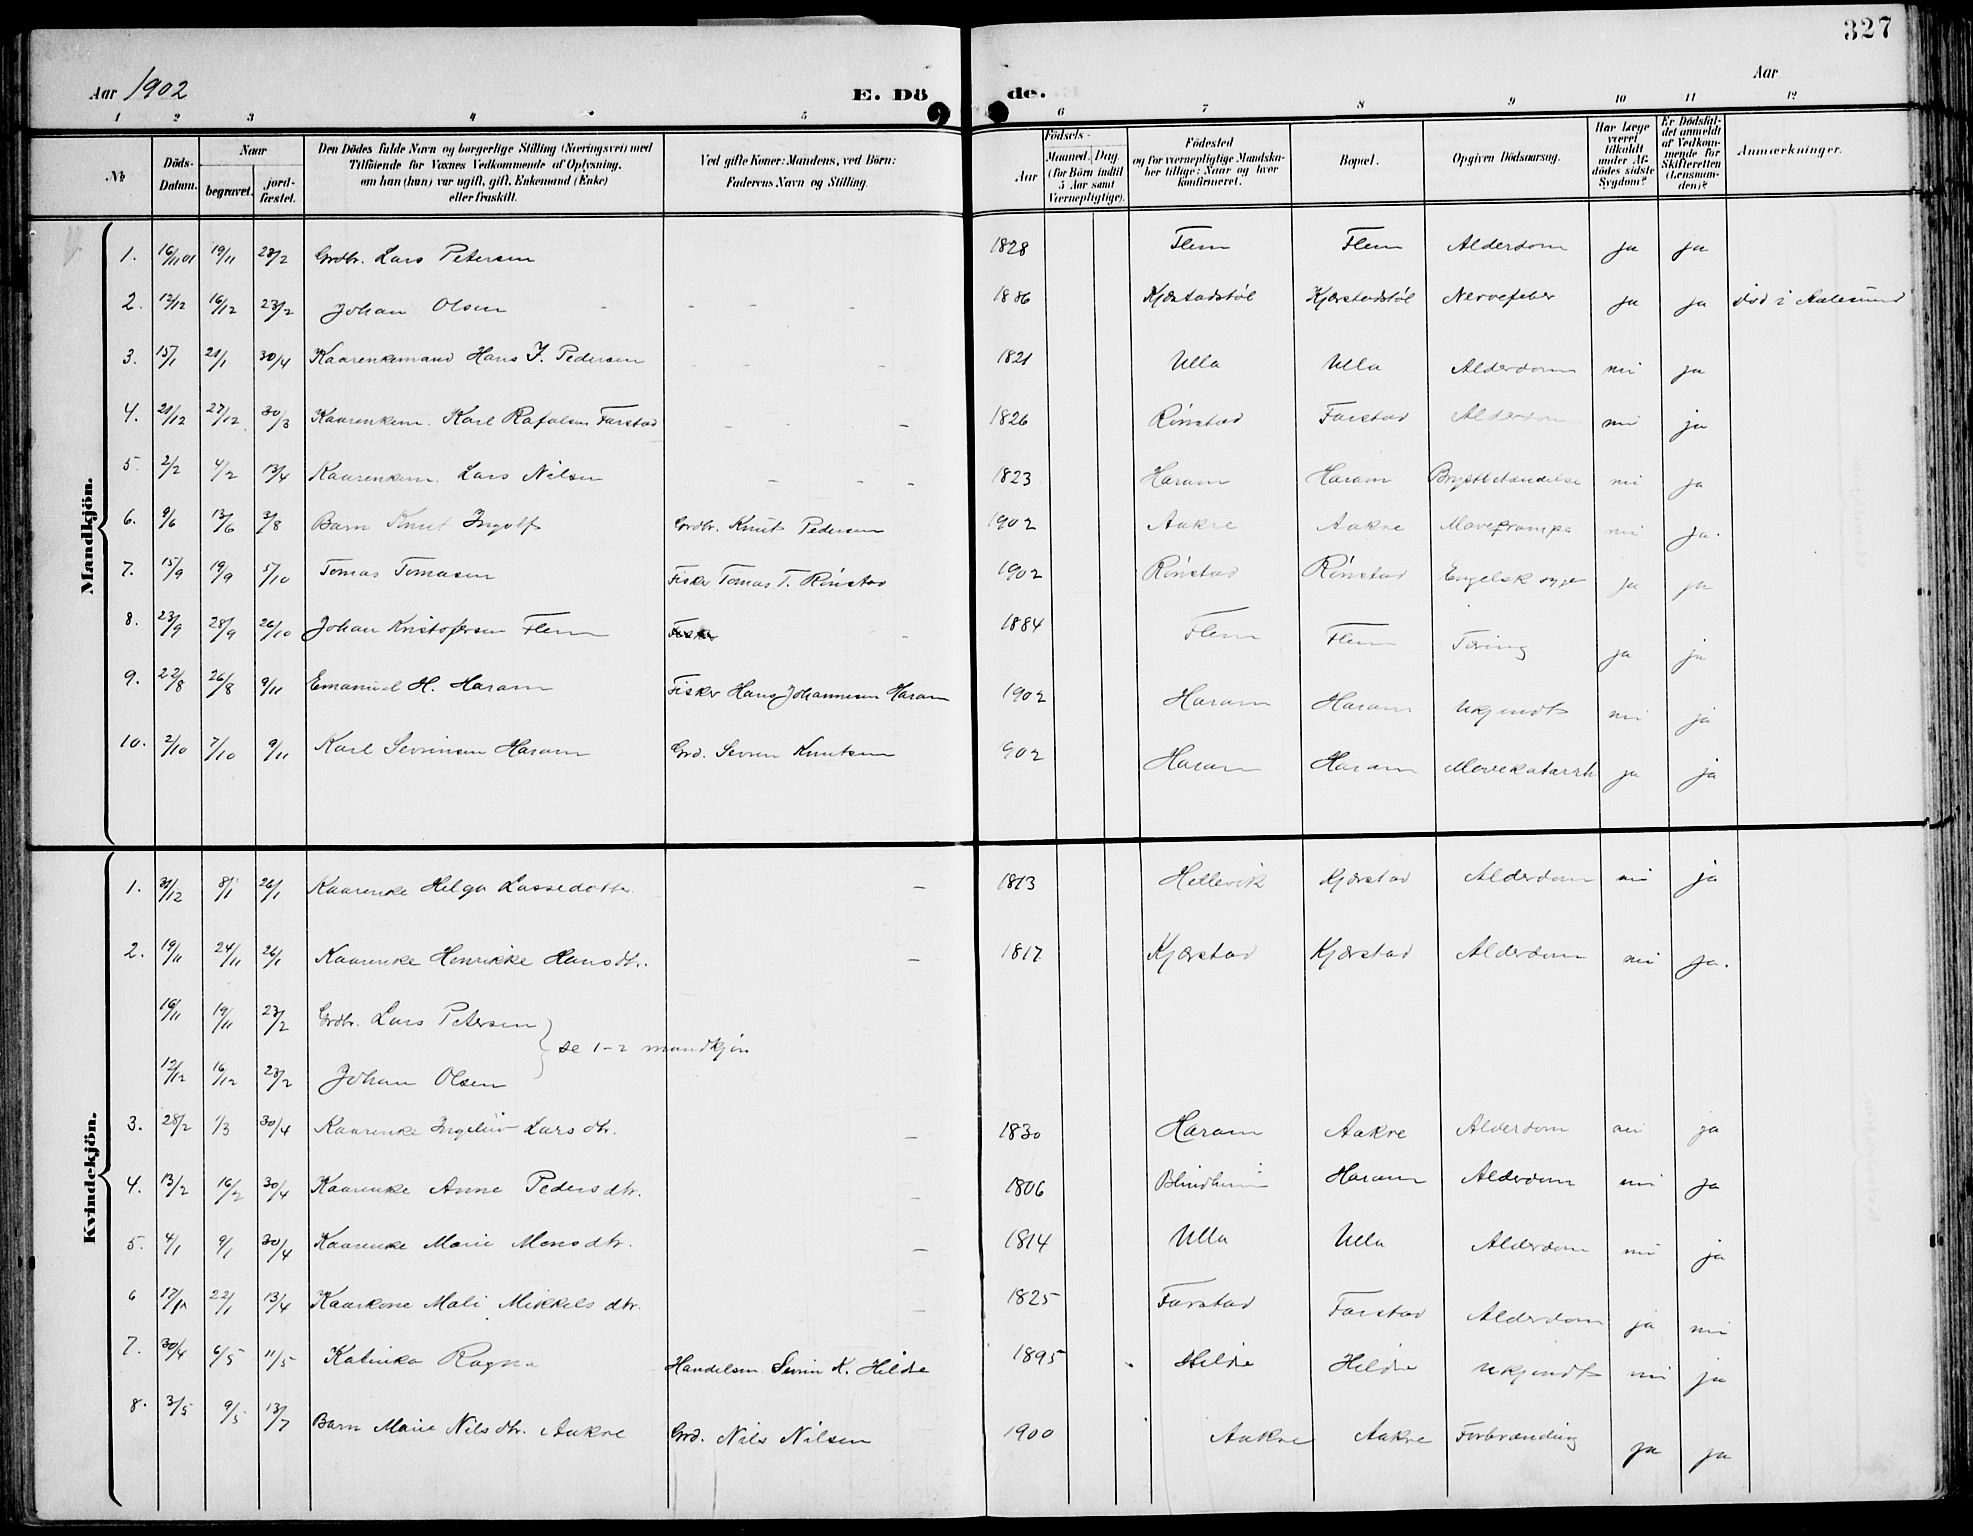 327
Aar 1902
E. Döde.
Aar
1 2 3 4 5 6 7 8 9 10 11 12
No
Döds-Datum.
Naar
begravet.
jord-fæstet.
Den Dödes fulde Navn og borgerlige Stilling (Næringsvei) med Tilföiende for Voxnes Vedkommende af Oplysning, om han (hun) var ugift, gift, Enkemand (Enke) eller fraskilt.
Ved gifte Koner: Mandens, ved Börn: Faderens Navn og Stilling.
Födsels-
Aar
Maaned. Dag.
(for Börn indtil 5 Aar samt Værnepligtige).
Födested og for værnepligtige Mandskaber tillige: Naar og hvor konfirmeret.
Bopæl.
Opgiven Dödsaarsag.
Har Læge været tilkaldt under Afdödes sidste Sygdom?
Er Dödsfaldet anmeldt af Vedkommende for Skifteretten (Lensmanden)?
Anmærkninger.
Mandkjön.
1. 16/11 01 19/11 23/2 Grdbr. Lars Petersen 1828 Flem Flem Alderdom ja ja
2. 12/12 16/12 23/2 Johan Olsen - - - 1886 Kjærstadstøl Kjærstadstøl Nervefeber ja ja død i Aalesund
3. 15/1 21/1 30/4 Kaarenkemand Hans J. Pedersen - - - 1821 Ulla Ulla Alderdom nei ja
4. 21/12 27/12 30/3 Kaarenkem. Karl Rafalsen Farstad - - - 1826 Rönstad Farstad Alderdom nei ja
5. 2/2 4/2 13/4 Kaarenkem. Lars Nilsen - - - 1823 Haram Haram Brystbetændelse nei ja
6. 9/6 13/6 3/8 Barn Knut Ingolf Grdbr. Knut Pedersen 1902 Aakre Aakre Mavekrampe nei ja.
7. 15/9 19/9 5/10 Tomas Tomasen Fisker Tomas T. Rönstad 1902 Rönstad Rönstad Engelsk syge ja ja
8. 23/9 28/9 26/10 Johan Kristofersen Flem Fisker - 1884 Flem Flem Tæring ja ja
9. 22/8 26/8 9/11 Emanuel H. Haram Fisker Hans Johannesen Haram 1902 Haram Haram Ukjendt nei ja
10. 2/10 7/10 9/11 Karl Sevrinsen Haram Grd. Sevrin Knutsen 902 Haram Haram Mavekatarrh ja ja
Kvindekjön.
1. 31/12 8/1 26/1 Kaarenke Helga Lassedotter - 1813 Hellevik Kjærstad Alderdom nei ja
2. 19/11 24/11 26/1 Kaarenke Henrikke Hansdtr. - 1817 Kjærstad Kjærstad Alderdom nei ja.
16/11 19/11 23/2 Grdbr. Lars Petersen
se 1-2 mandkjön
12/12 16/12 23/2 Johan Olsen
3. 28/2 1/3 30/4 Kaarenke Ingeliv Larsdtr. - 1830 Haram Aakre Alderdom nei ja
4. 13/2 16/2 30/4 Kaarenke Anne Pedersdtr. - 1806 Blindheim Haram Alderdom nei ja
5. 4/1 9/1 30/4 Kaarenke Marie Monsdtr. - 1814 Ulla Ulla Alderdom nei ja
6 17/1 22/1 13/4 Kaarkone Mali Mikkelsdtr. - 1825 Farstad Farstad Alderdom ja nei
7. 30/4 6/5 11/5 Katinka Ragna Handelsm. Sevrin K. Hildre 1895 Hildre Hildre Ukjendt nei ja
8. 3/5 9/5 13/7 Barn Marie Nilsdtr. Aakre Grd. Nils Nilsen 1900 Aakre Aakre Forbrænding ja ja